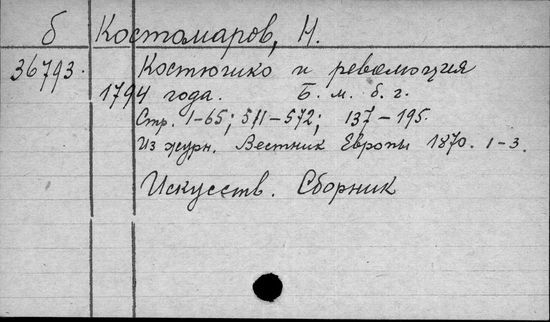 б Костомаров, Н.
36793. Костюшко и революция
1794 года. Б. м. б. г.
Стр. 1-65; 511-572; 137-195.
Из журн. Вестник Европы 1870. 1-3.
Искусств. Сборник